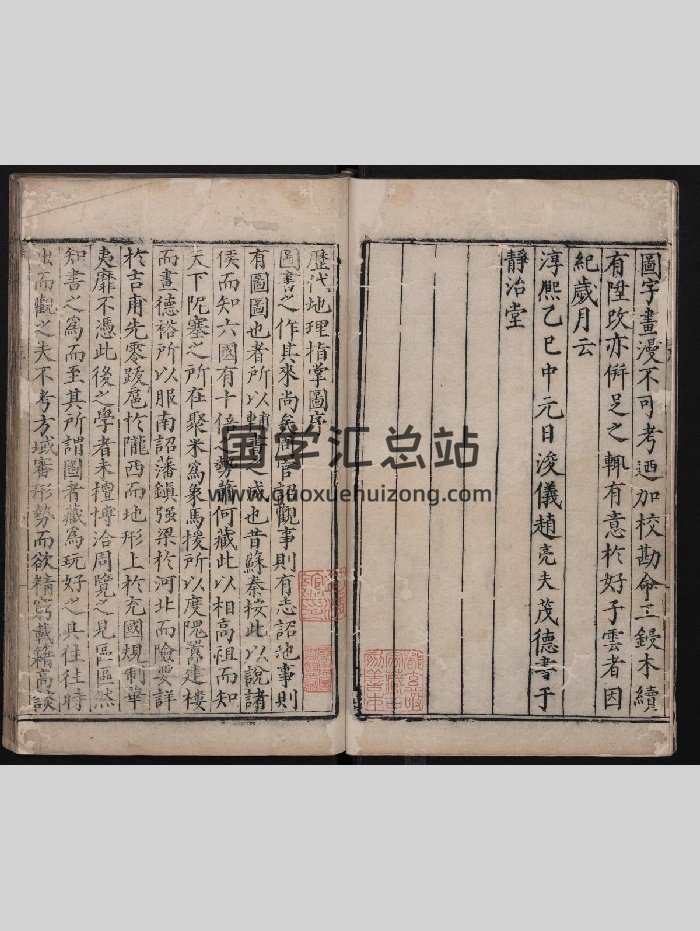 圖字畫漫不可考迺加校勘命工鋟木續
有陞改亦倂足之輒有意於好子雲者因
紀歲月云
淳熙乙巳中元日浚儀趙亮夫茂德書于
靜治堂
歷代地理指掌圖序
圖書之作其來尚矣周官詔觀事則有志詔地事則
有圖圖也者所以輔書之成也昔蘇秦按此以說諸
侯而知六國有十倍之勢蕭何藏此以相高祖而知
天下阨塞之所在聚米爲象馬援所以度隗囂建樓
而畫德裕所以服南詔藩鎮强梁於河北而險要詳
於吉甫先零跋扈於隴西而地形上於充國規制華
夷靡不憑此後之學者未擅博洽周覽之見區區然
知書之爲而至其所謂圖者藏爲玩好之具往往時
出而觀之夫不考方域審形勢而欲精窮載籍高談
国学汇总站
www.guoxuehuizong.com